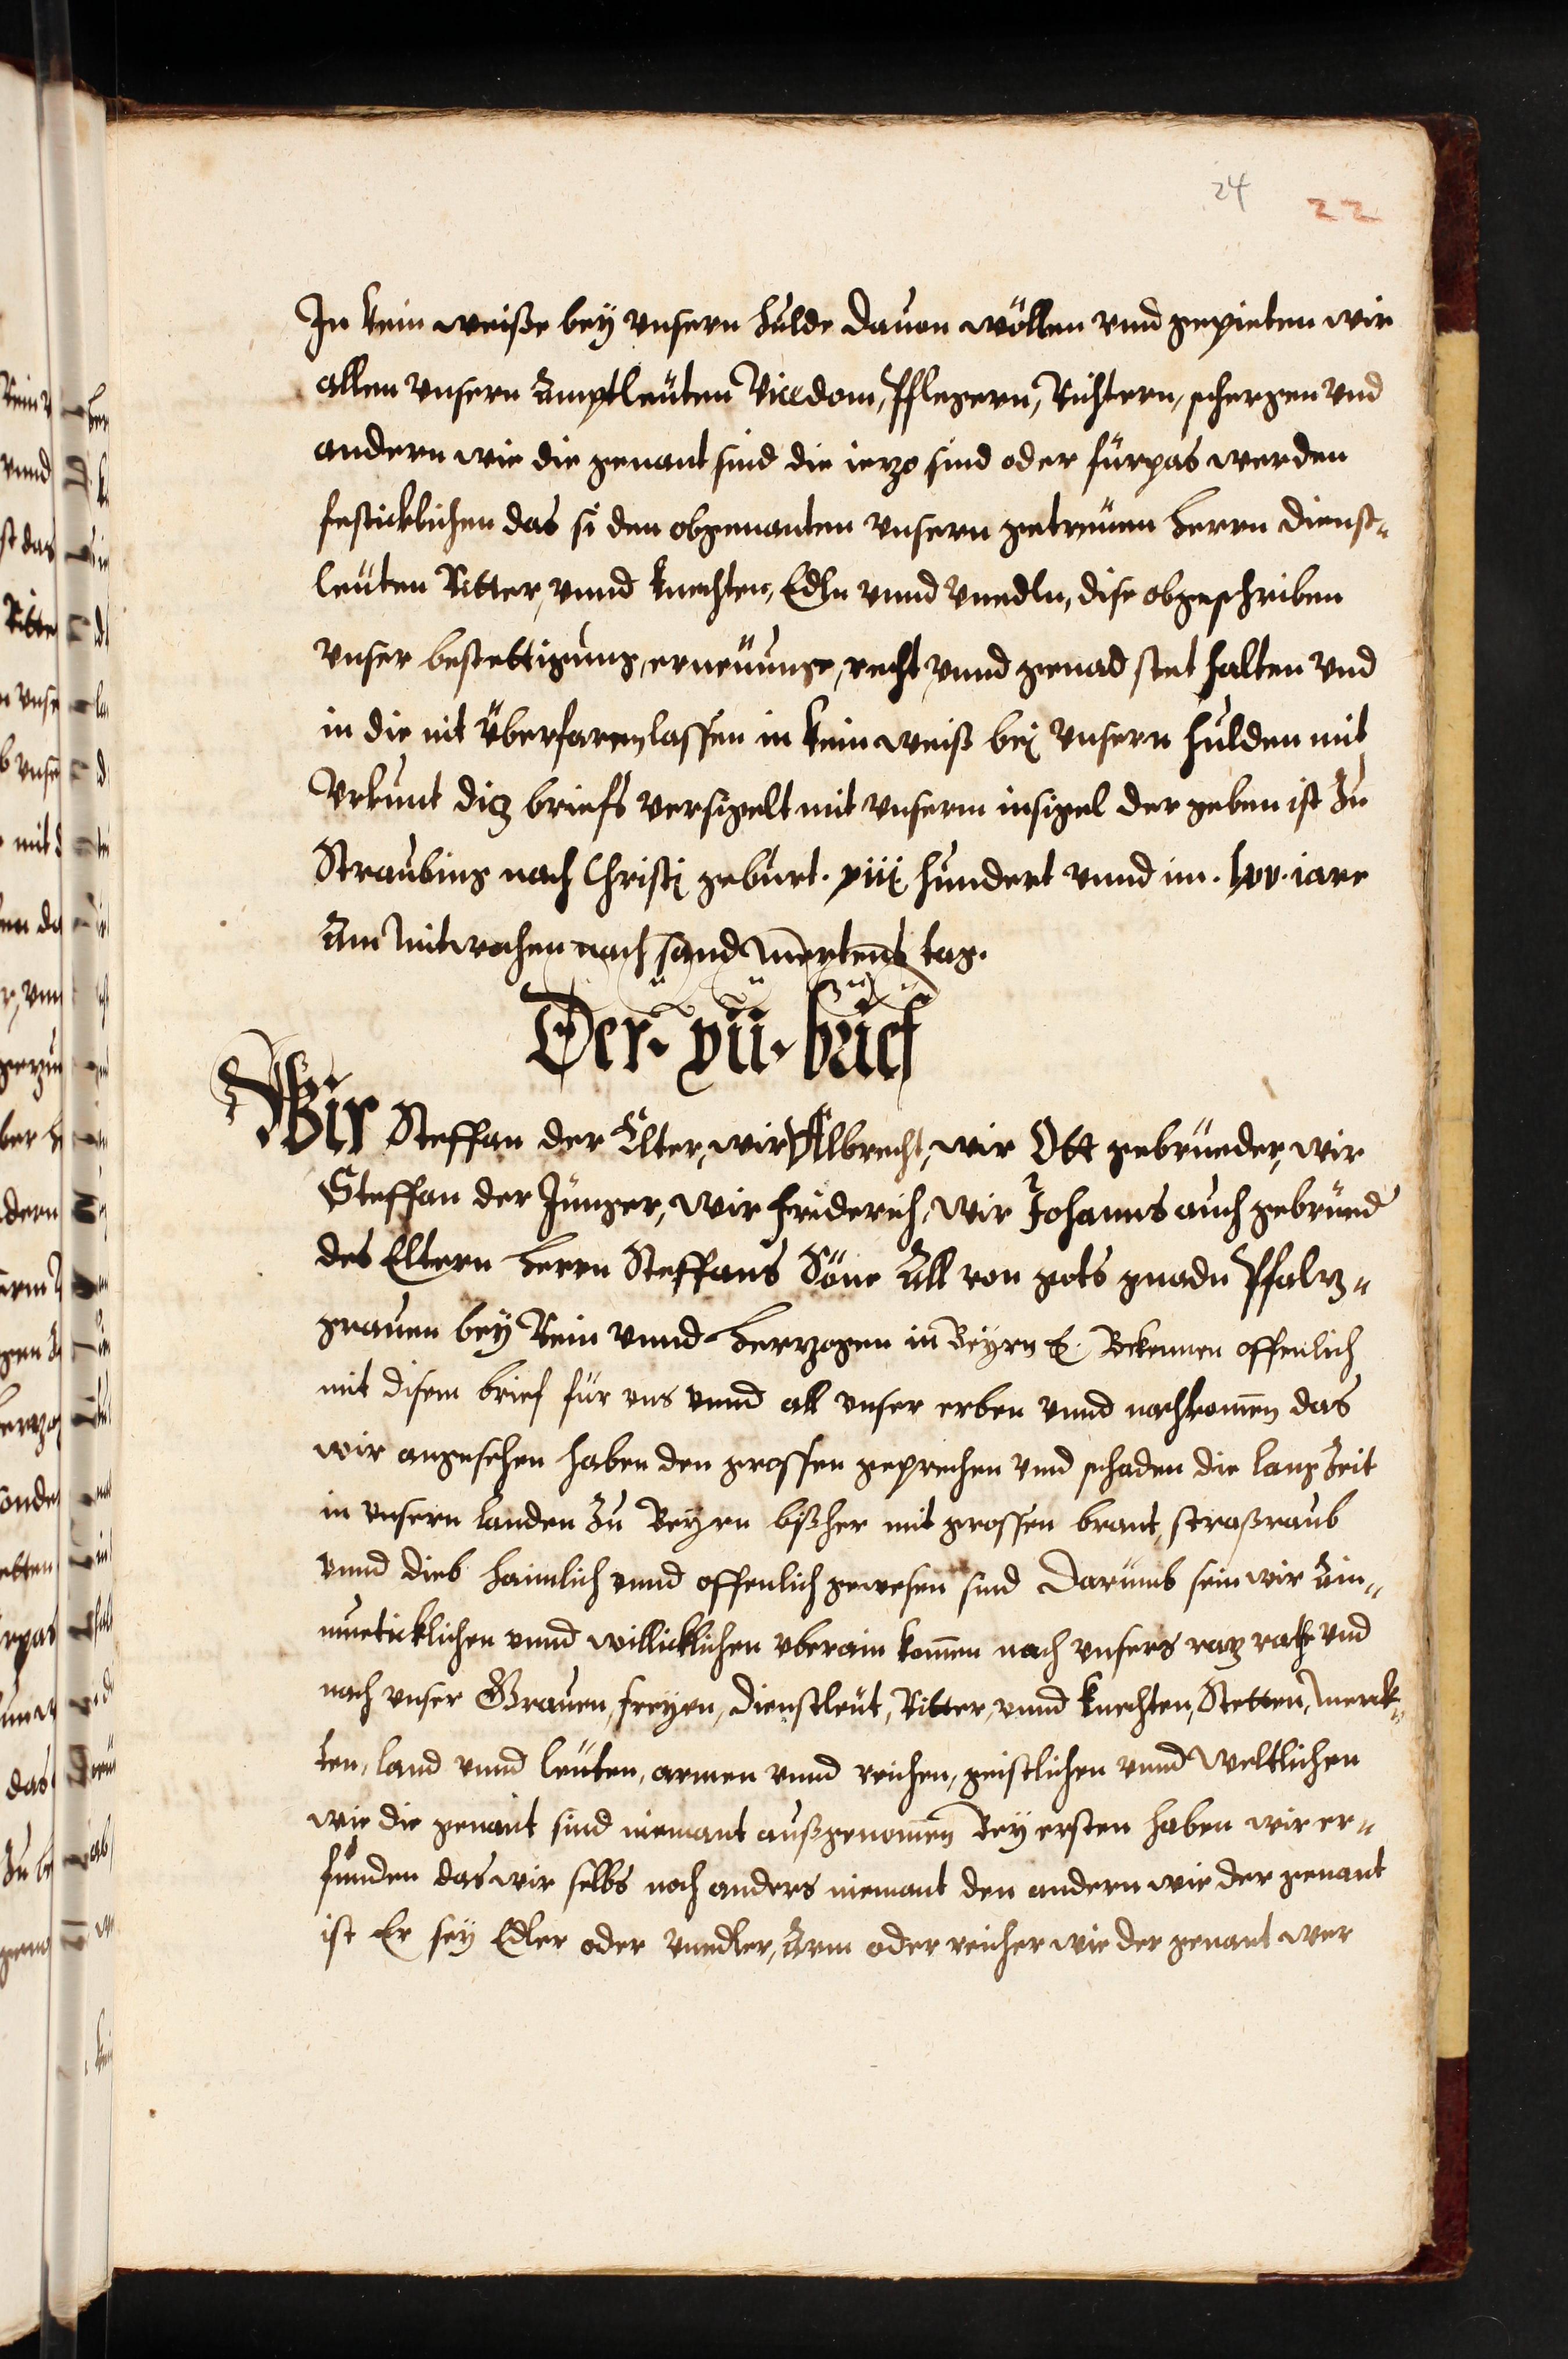 24 22
In kein weiße bey vnsern hulde dauon wöllen vnd gepieten wir
allen vnsern Amptleuten Vicedom, Pflegern, Richtern, schergen vnd
andern wie die genant sind die ietzo sind oder fürpas werden
festicklichen das si den obgenanten vnsern getreuen Herrn dienst-
leuten Ritter, vnnd knechten, Edln vnnd vnedln, dise obgeschriben
vnser bestettigung, erneuunge, recht vnnd genad stet halten vnd
in die nit überfaren lassen in kein weiß bei vnsern hulden mit
Vrkunt ditz briefs versigelt mit vnserm insigel der geben ist zu
Straubing nach Christi geburt. xiii hundert vnnd im. lxv. iare
Am Mitwochen nach sand Mertens tag.
Der. xii. brief
Wir Steffan der Elter, wir Albrecht, wir Ott gebrueder, wir
Steffan der Junger, wir Friderich, wir Johanns auch gebrued
des Eltern Herrn Steffans Söne All von gots gnadn Pfaltz-
grauen bey Rein vnnd Hertzogen in Beyrn &. Bekennen offenlich
mit disem brief für vns vnnd all vnser erben vnnd nachkomen das
wir angesehen haben den grossen geprechen vnd schaden die lang zeit
in vnsern Landen zu Beyrn bißher mit grossen brant, straßraub
vnnd dieb haimlich vnnd offenlich gewesen sind Darumb sein wir Ain-
mueticklichen vnnd willicklichen vberain komen nach vnsers ratz rathe vnd
nach vnser Grauen, freyen, dienstleut, Ritter, vnnd knechten, Stetten, Merck-
ten, land vnnd leuten, armen vnnd reichen, geistlichen vnnd Weltlichen
wie die genant sind niemant außgenomen Bey ersten haben wir er-
funden das wir selbs noch anders niemant den andern wie der genant
ist Er sey Edler oder vnedler, Arm oder reicher wie der genant wer